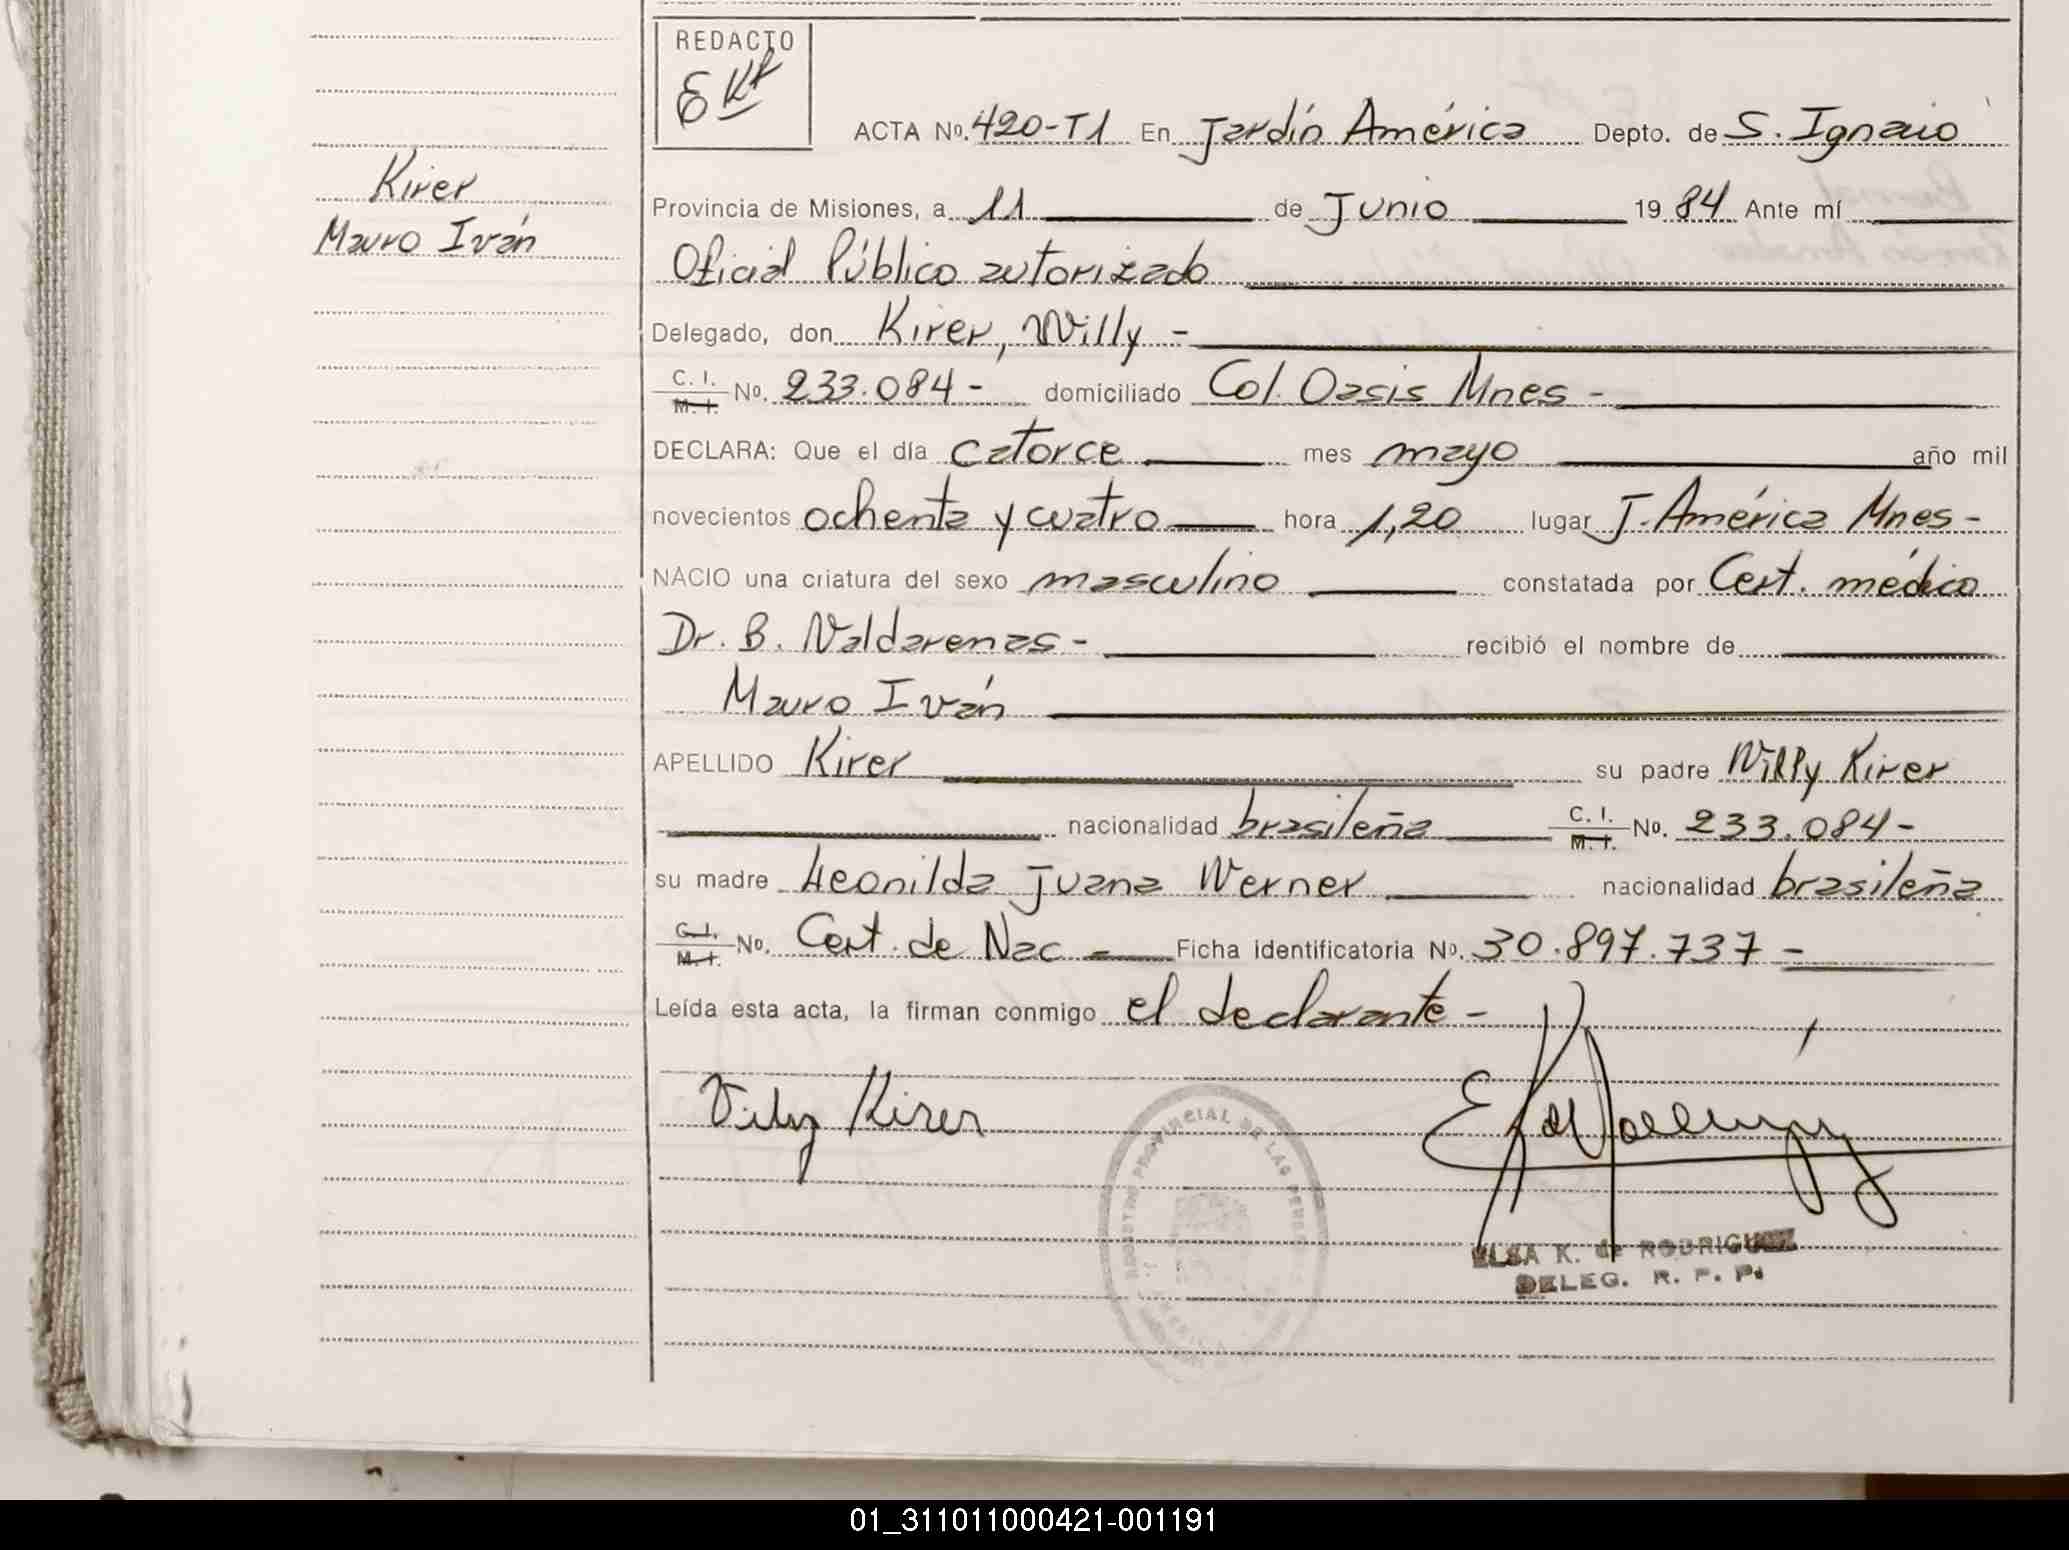 REDACTO
EKR
ACTA Nº. 420-T1 En Jardín América Depto. de S. Ignacio
Kirer
Mauro Iván
Provincia de Misiones, a 11 de Junio 19 84 Ante mí
Oficial Público autorizado
Delegado, don Kirer, Willy -
C. I. M. I. Nº. 233.084 - domiciliado Col. Oasis Mnes -
DECLARA: Que el día catorce mes mayo año mil
novecientos ochenta y cuatro hora 1,20 lugar J. América Mnes -
NACIO una criatura del sexo masculino constatada por Cert. médico
Dr. B. Valdarenas - recibió el nombre de
Mauro Iván
APELLIDO Kirer su padre Willy Kirer
nacionalidad brasileña C. I. M. I. Nº. 233.084 -
su madre Leonilda Juana Werner nacionalidad brasileña
C. I. M. I. Nº. Cert. de Nac - Ficha identificatoria Nº. 30.897.737 -
Leída esta acta, la firman conmigo el declarante -
Kirer
REGISTRO PROVINCIAL DE LAS
ELSA K. de RODRIGUEZ
DELEG. R. P. P.
01_311011000421-001191